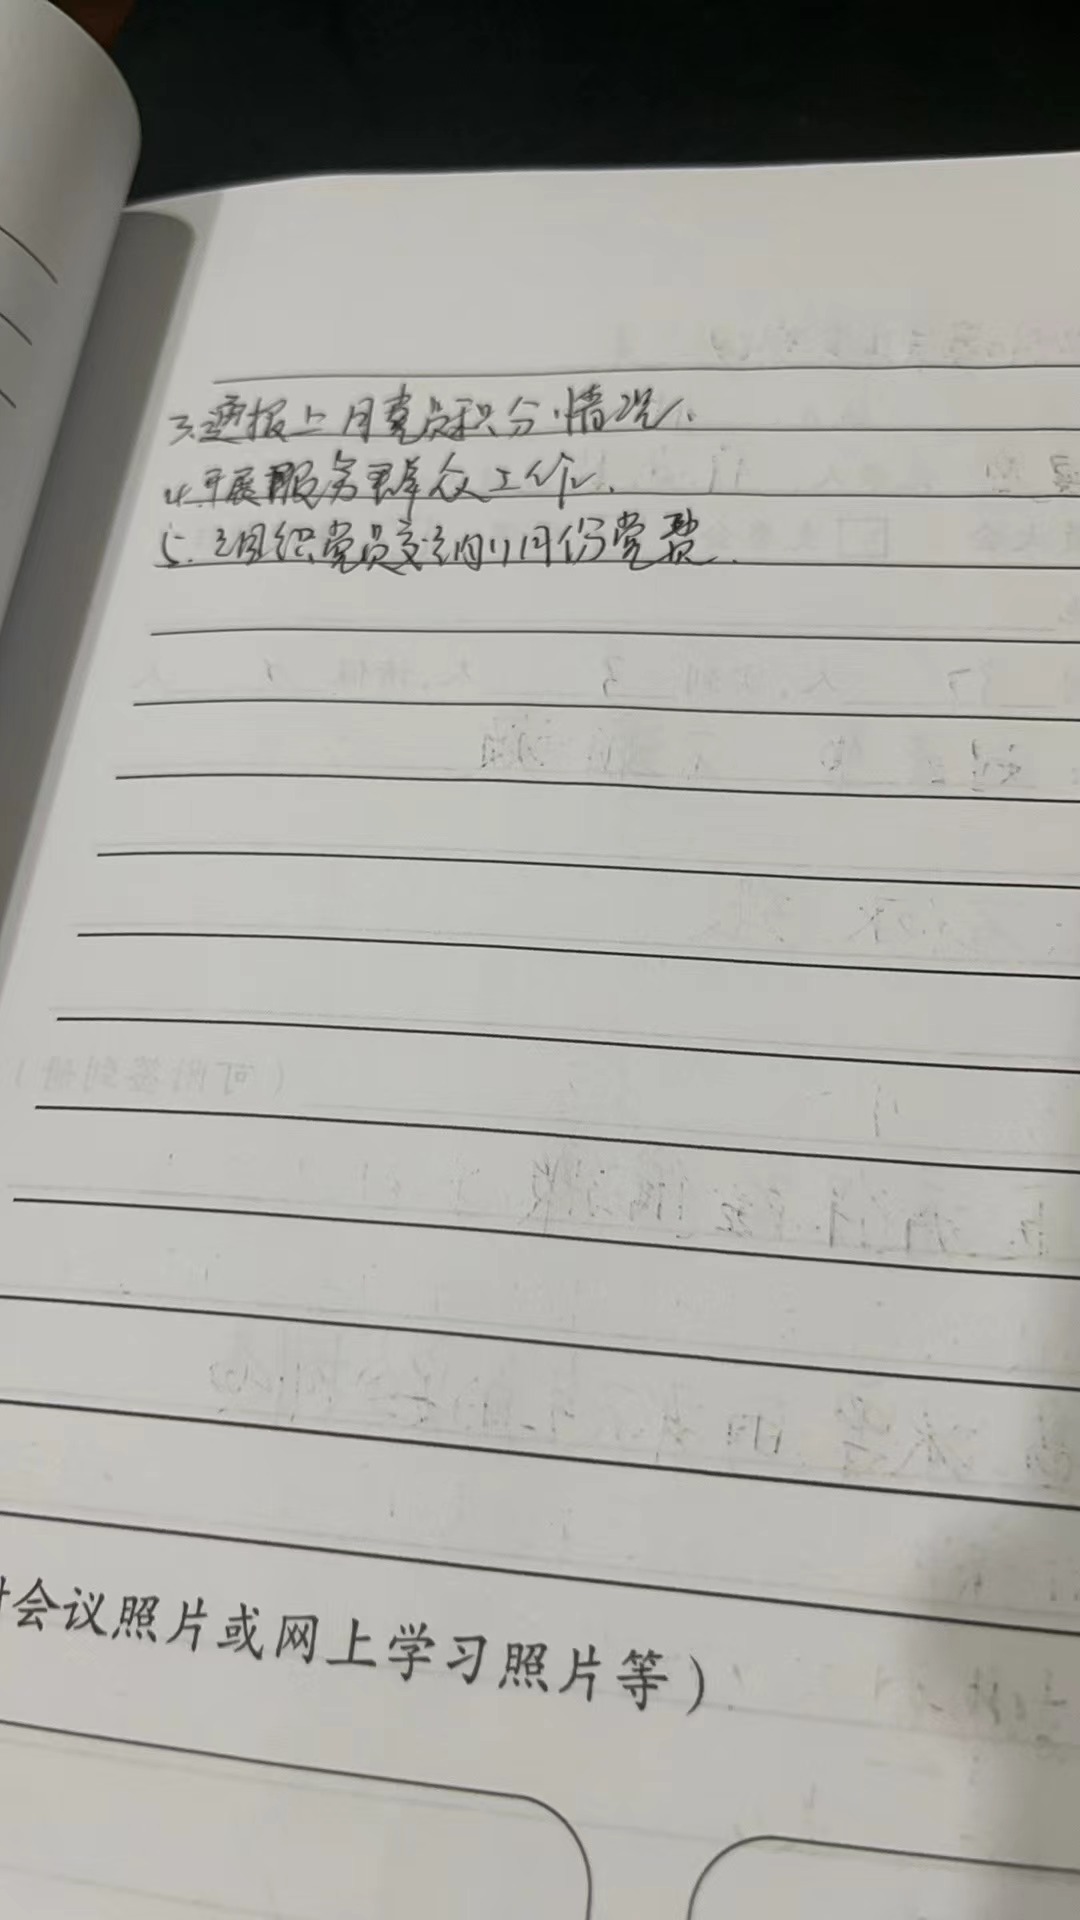 3.通报上月党员积分情况、
4.开展服务群众工作、
5.组织党员交纳11月份党费.
会议照片或网上学习照片等）